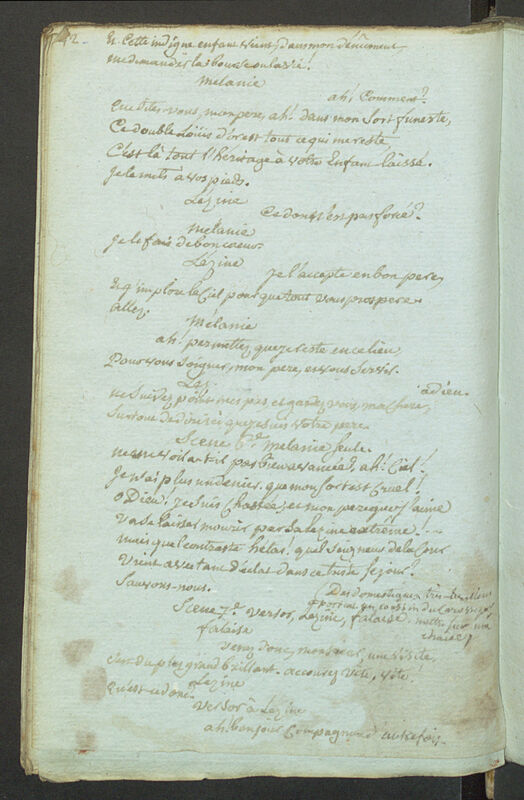 42.
Et cette indigne enfant vient, dans mon dénüment
me demander la bourse ou la vie!
Mélanie
ah! Comment?
Que dites-vous, mon pere, ah! dans mon sort funeste,
Ce double Loüis d'or est tout ce qui me reste,
C'est là tout l'héritage à votre Enfant laissé.
Je le mets à vos pieds.
Lézine
Ce don n'est pas forcé?
Mélanie
Je le fais de bon coeur.
Lézine
Je l'accepte en bon pere,
Et j'implore le Ciel pour que tout vous prospere.
allez.
Mélanie
ah! permettez que je reste en ce lieu,
Pour vous soigner, mon pere, et vous servir.
Léz.
adieu.
ne suivez point mes pas, et gardez vous, ma chere,
Surtout de dire ici que je suis votre pere.
Scene 6.e Mélanie seule.
me voilà-t-il pas bien avancée, ah! Ciel!
Je n'ai plus un denier. que mon sort est Cruel!
o Dieu! je suis chassée, et mon pere que j'aime
Va se laisser mourir par sa lézine extrême! --
mais quel contraste hélas! quel Seigneur de la Cour
Vient avec tant d'éclat dans ce triste séjour?
Sauvons-nous.
(Des domestiques
Scene 7.e Versor, Lézine, falaise.
falaise
venez donc, monsieur, une visite,
c'est du plus grand brillant. accourez vîte, vîte.
Lézine
Qu'est ce donc.
Versor à Lézine
ah! bonjour Compagnon d'autrefois,